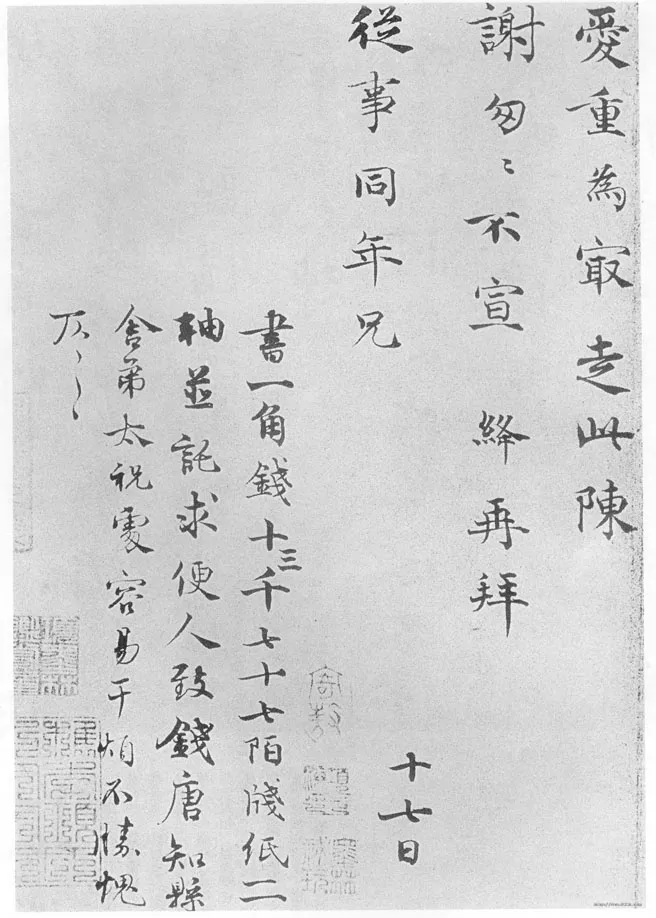 愛重為冣走此陳
謝匆〻不宣 絳再拜
從事同年兄
十七日
書一角錢十三千七十七陌牋紙二
軸並託求便人致錢唐知縣
舍弟太祝處容易干煩不勝愧
仄〻